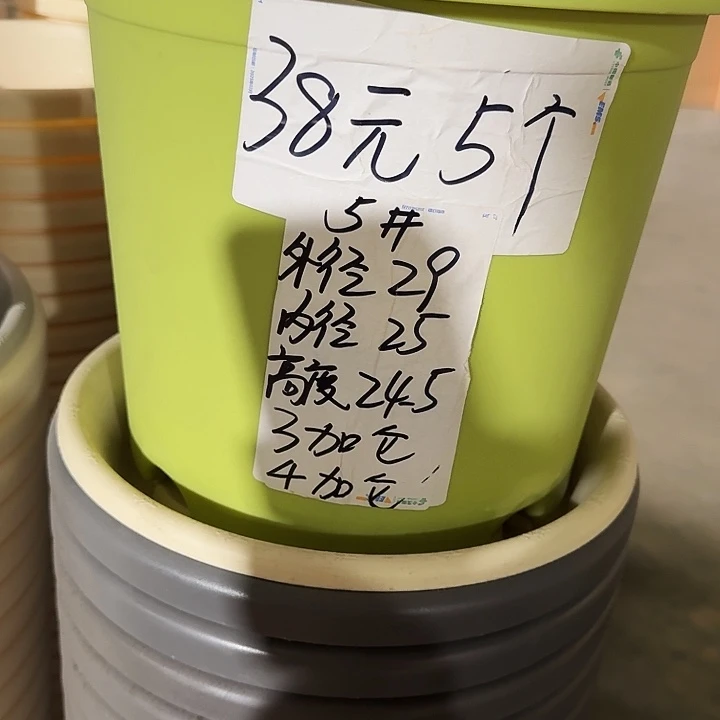 38元5个
5#
外径29
内径25
高度24.5
3加仑
4加仑